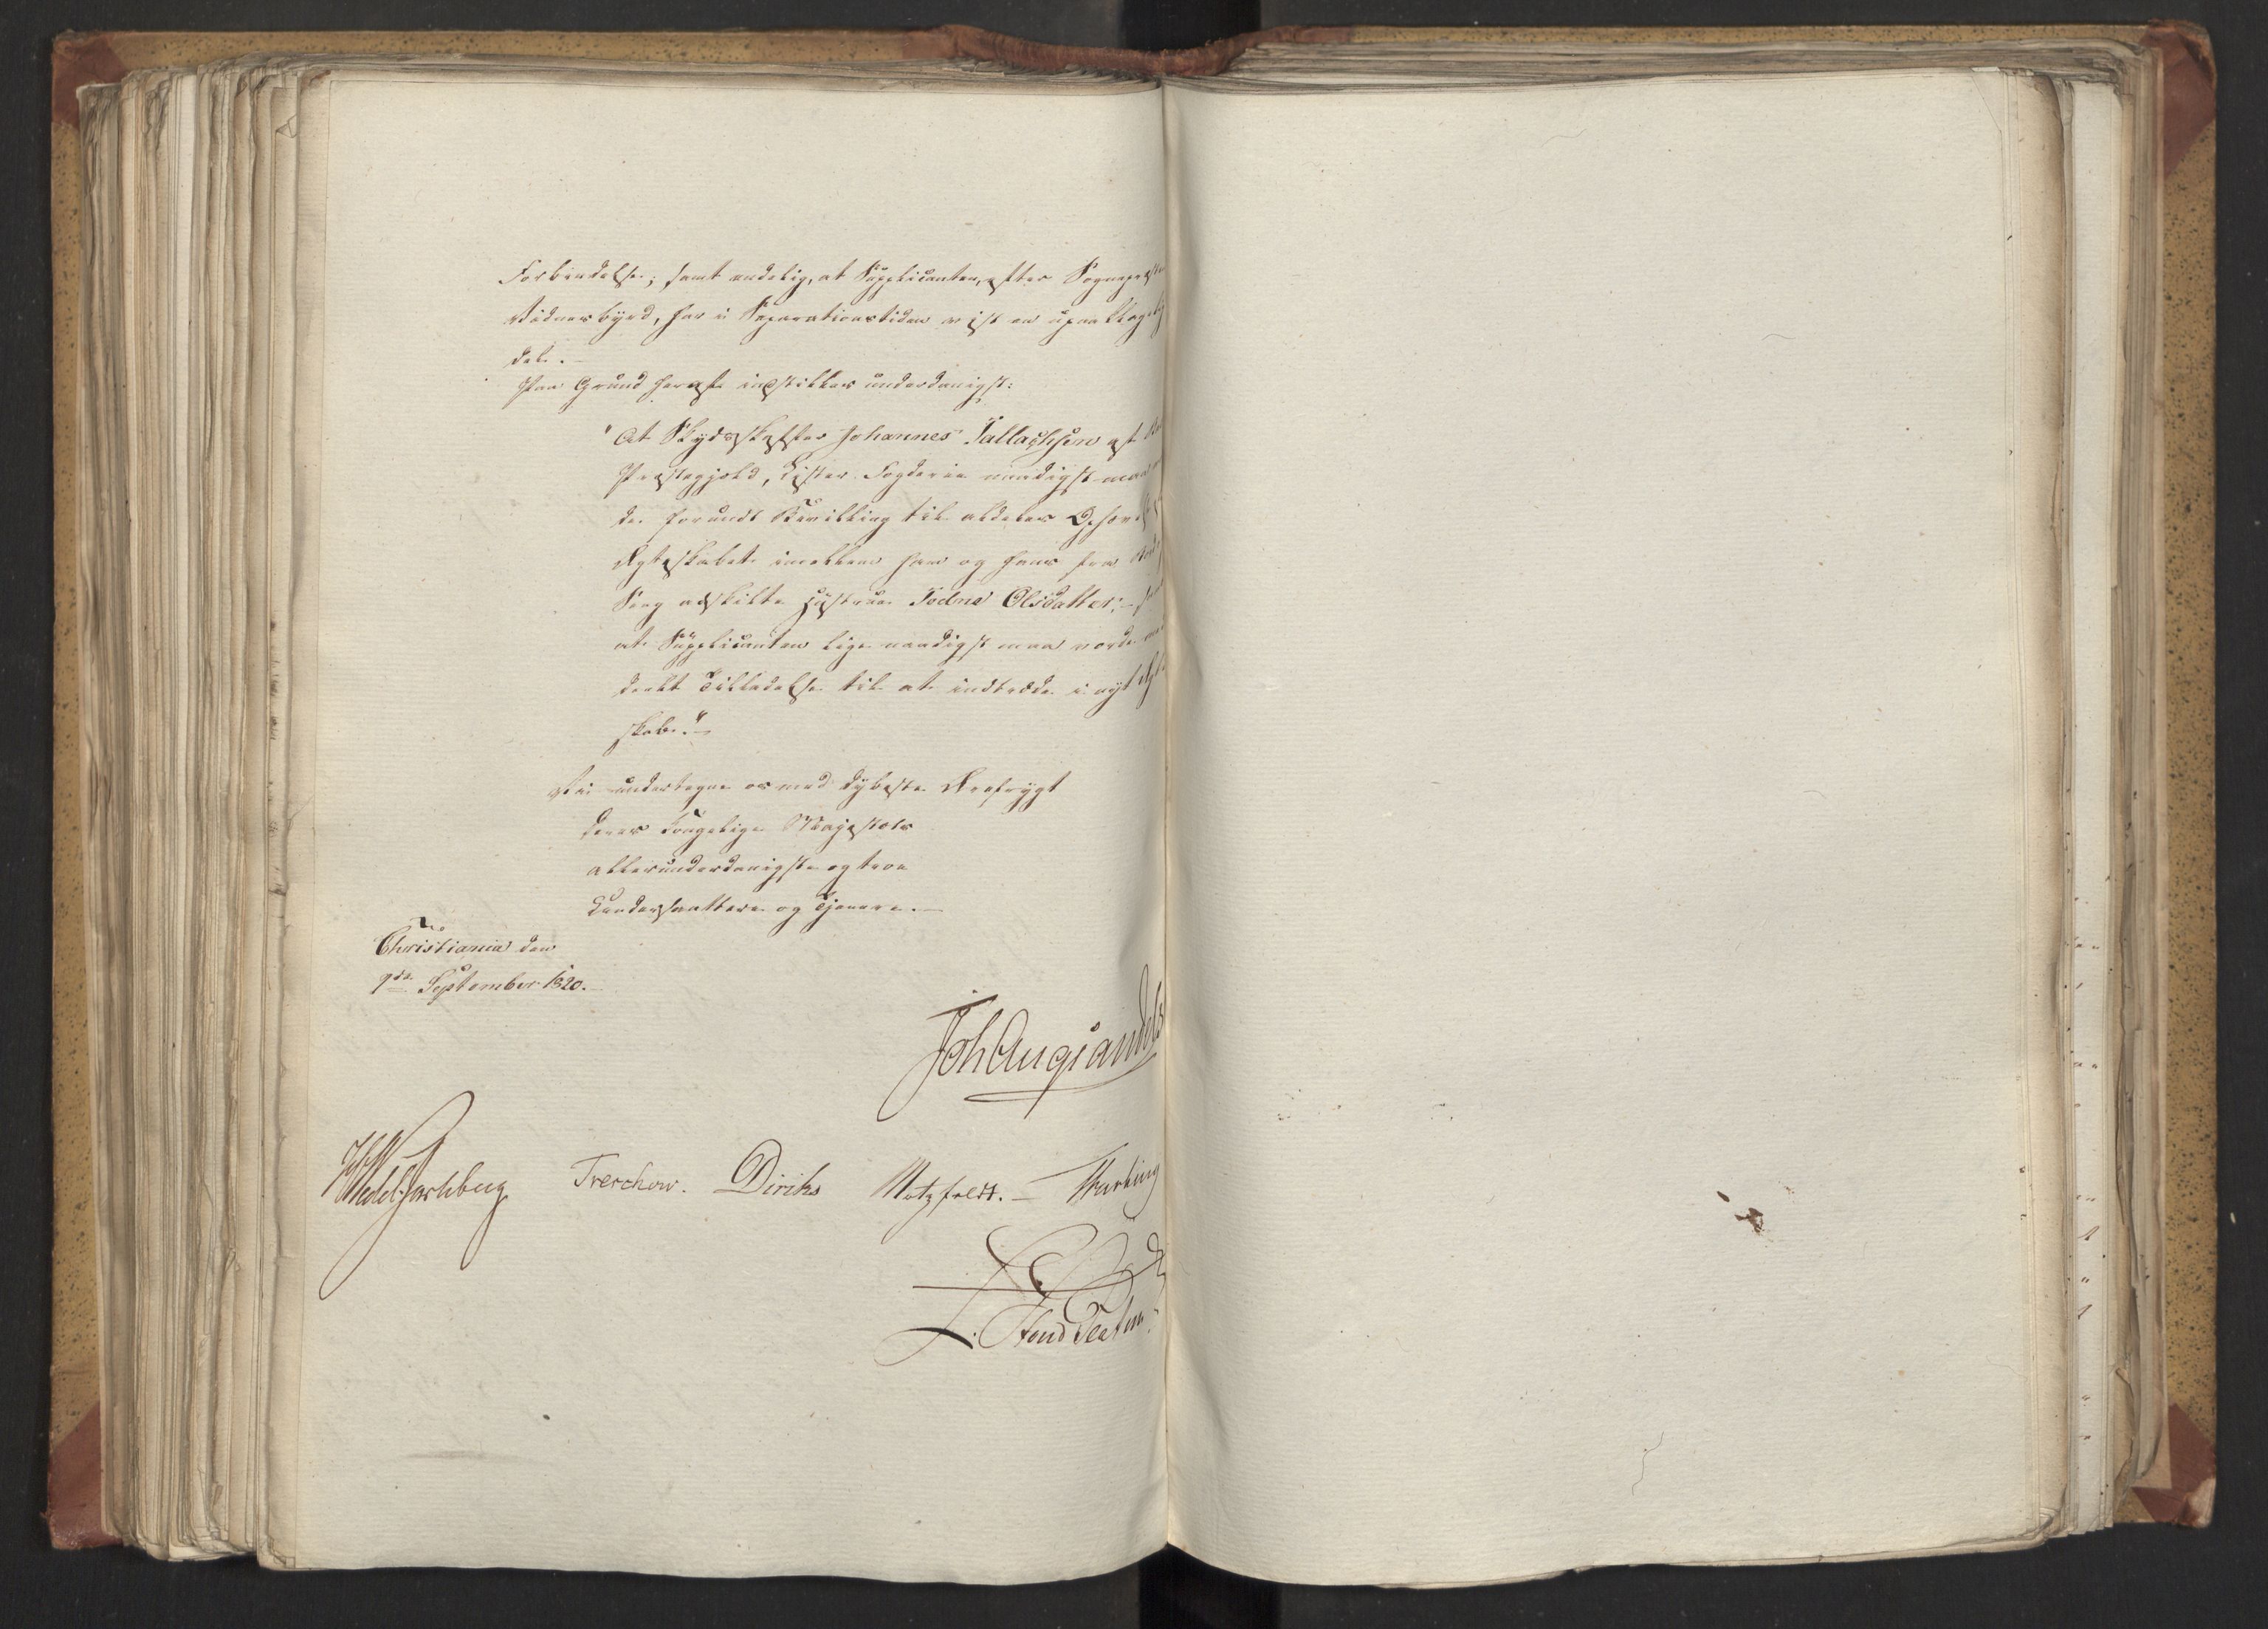 Forbindelse; samt endelig, at Supplicanten, efter Sognepræstens
Vidnesbyrd, har i Separationstiden vist en upaaklagelig
del.
Paa Grund heraf indstilles underdanigst:
"At Skydsskaffer Johannes Tallachsen af
Præstegjeld, Lister Fogderie naadigst maa
de forundt Bevilling til aldeles Ophævelse
Ægteskabet imellem ham og hans fra Bord og
Seng adskilte Hustrue Todne Olsdatter; –
at Supplicanten lige naadigst maa vorde med
deelt Tilladelse til at indtræde i nyt Ægte
skab." –
Vi undertegne os med dybeste Ærefrygt
Deres Kongelige Majestæts
allerunderdanigste og troe
Undersaatter og Tjenere. –
Christiania den
9de September 1820. –
Joh Aug Sandels
Wedel Jarlsberg Treschow. Diriks Motzfeldt. –